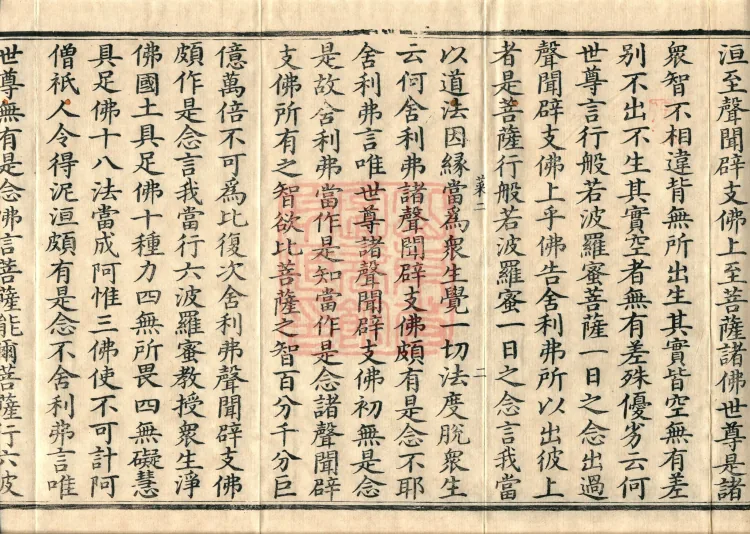 洹至聲聞辟支佛上至菩薩諸佛世尊是諸
衆智不相違背無所出生其實皆空無有差
別不出不生其實空者無有差殊優劣云何
世尊言行般若波羅蜜菩薩一日之念出過
聲聞辟支佛上乎佛告舍利弗所以出彼上
者是菩薩行般若波羅蜜一日之念言我當
菜二
二
以道法因緣當為衆生覺一切法度脫衆生
云何舍利弗諸聲聞辟支佛頗有是念不耶
舍利弗言唯世尊諸聲聞辟支佛初無是念
是故舍利弗當作是知當作是念諸聲聞辟
支佛所有之智欲比菩薩之智百分千分巨
億萬倍不可為比復次舍利弗聲聞辟支佛
頗作是念言我當行六波羅蜜教授衆生淨
佛國土具足佛十種力四無所畏四無礙慧
具足佛十八法當成阿惟三佛使不可計阿
僧祇人令得泥洹頗有是念不舍利弗言唯
世尊無有是念佛言菩薩能爾菩薩行六波